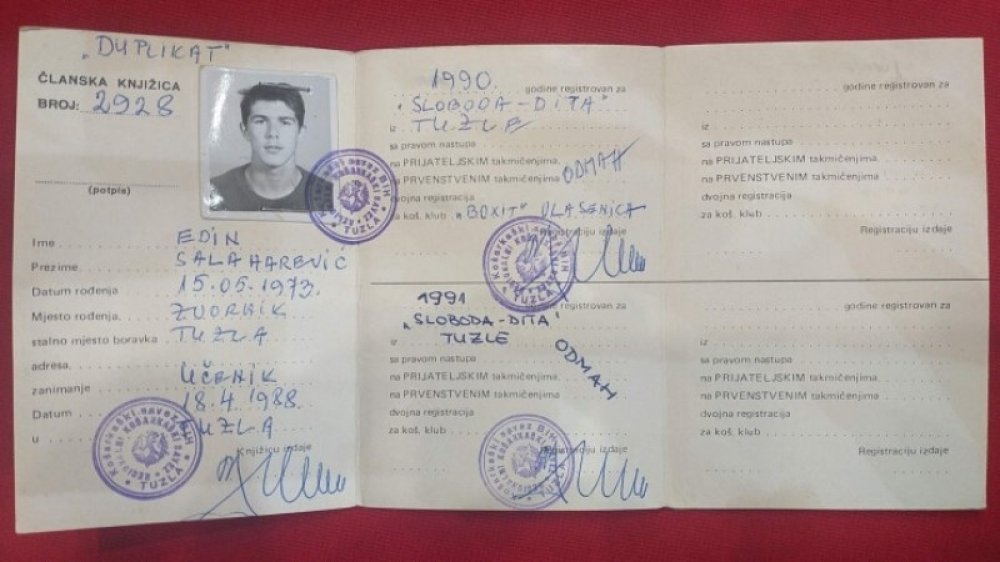 „DUPLIKAT"
ČLANSKA KNJIŽICA
BROJ: 2928
(potpis)
Ime EDIN
Prezime SALAHAREVIĆ
Datum rođenja 15.05.1973.
Mjesto rođenja ZVORNIK
stalno mjesto boravka TUZLA
adresa
zanimanje UČENIK
Datum 18.4.1988.
u TUZLA
Knjižicu izdaje
Košarkaški savez BIH
REGIONALNI KOŠARKAŠKI SAVEZ
TUZLA
1990. godine registrovan za
„SLOBODA-DITA"
iz TUZLE
sa pravom nastupa
na PRIJATELJSKIM takmičenjima ODMAH
na PRVENSTVENIM takmičenjima
dvojna registracija
za koš. klub „BOXIT" VLASENICA
Registraciju izdaje
Košarkaški savez BIH
TUZLA
1991 godine registrovan za
„SLOBODA-DITA"
iz TUZLE
sa pravom nastupa ODMAH
na PRIJATELJSKIM takmičenjima
na PRVENSTVENIM takmičenjima
dvojna registracija
za koš. klub
Registraciju izdaje
Košarkaški savez BIH
TUZLA
godine registrovan za
iz
sa pravom nastupa
na PRIJATELJSKIM takmičenjima
na PRVENSTVENIM takmičenjima
dvojna registracija
za koš. klub
Registraciju izdaje
godine registrovan za
iz
sa pravom nastupa
na PRIJATELJSKIM takmičenjima
na PRVENSTVENIM takmičenjima
dvojna registracija
za koš. klub
Registraciju izdaje